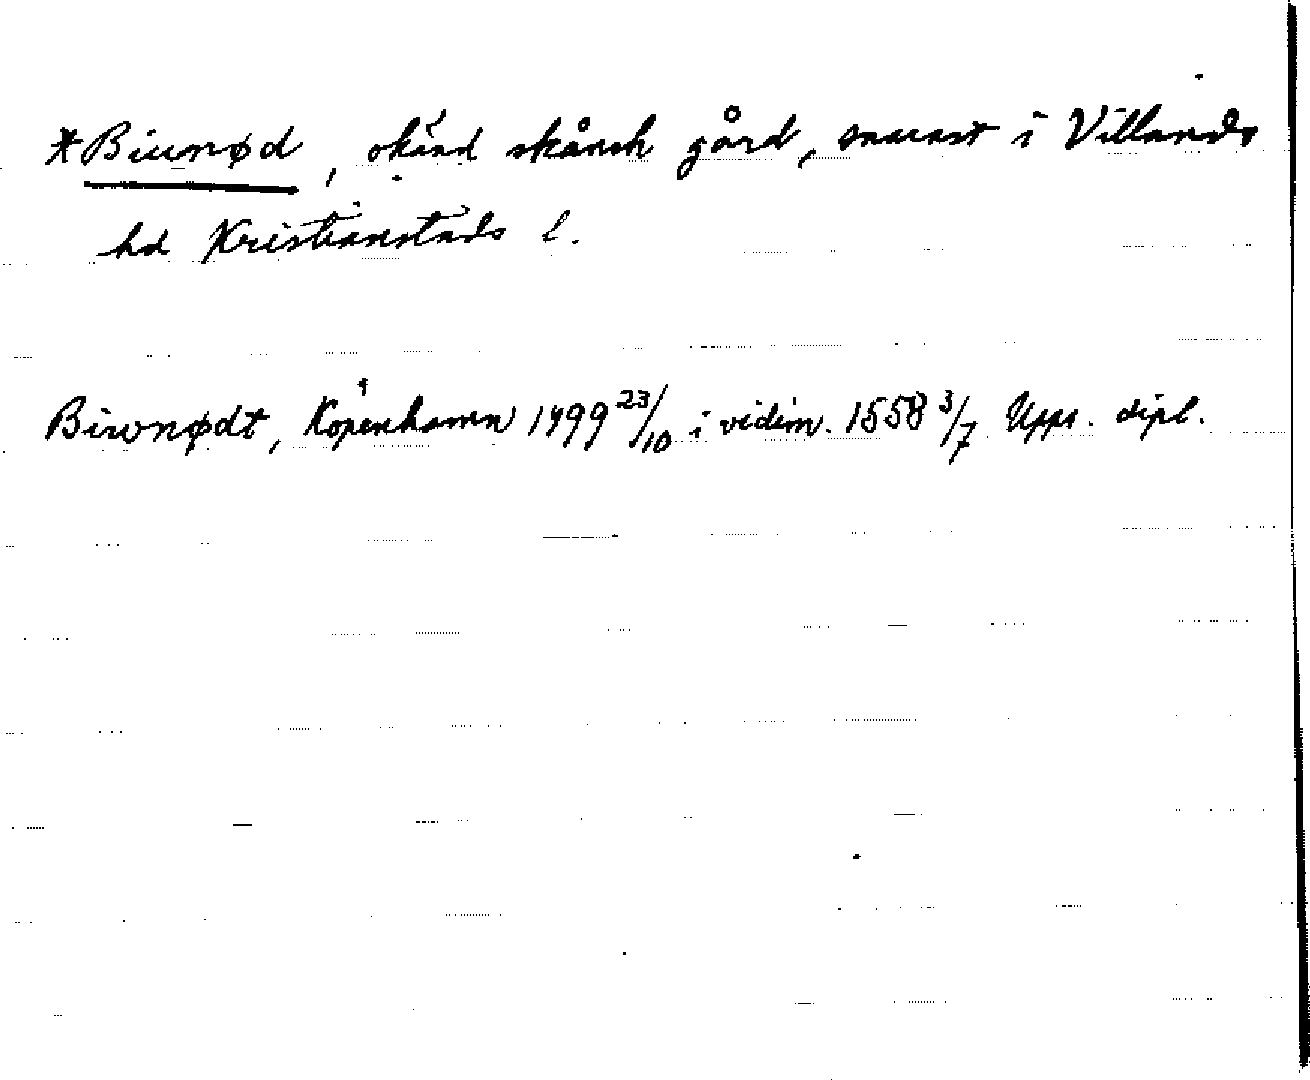 *Biurnød, okänd skånsk gård, snarast i Villands
hd Kristianstads l.
Biwrnødt, Köpenhamn 1499 23/10 i vidim. 1558 3/7 Upps. dipl.